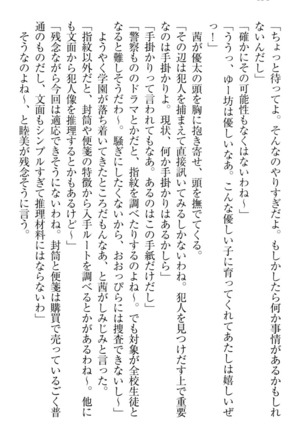 「ちょっと待ってよ。そんなのやりすぎだよ。もしかしたら何か事情があるかもしれ
ないんだし」
「確かにその可能性もなくはないわね〜」
「ううっ、ゆー坊は優しいなあ。こんな優しい子に育ってくれてあたしは嬉しいぜ
っ！」
茜が優太の頭を胸に抱き寄せ、頭を撫でてくる。
「その辺は犯人を捕まえて直接訊いてみるしかないわね。犯人を見つけだす上で重要
なのは手掛かりよ。現状、何か手掛かりはあるかしら」
「手掛かりって言われてもなあ。あるのはこの手紙だけだし」
「警察もののドラマとかだと、指紋を調べたりするのよね〜。でも対象が全校生徒と
なると難しそうだわ〜。騒ぎにしたくないから、おおっぴらには捜査できないし〜」
ようやく学園が落ち着いてきたところだもんなあ、と茜がしみじみと言った。
「指紋以外だと、封筒や便箋の特徴から入手ルートを調べるとかがあるわね〜。他に
も文面から犯人像を推理するとかもあるけど〜」
「残念ながら今回は適応できそうにないわね。封筒と便箋は購買で売っているごく普
通のものだし、文面もシンプルすぎて推理材料にはならないわ」
そうなのよね〜、と睦美が残念そうに言う。